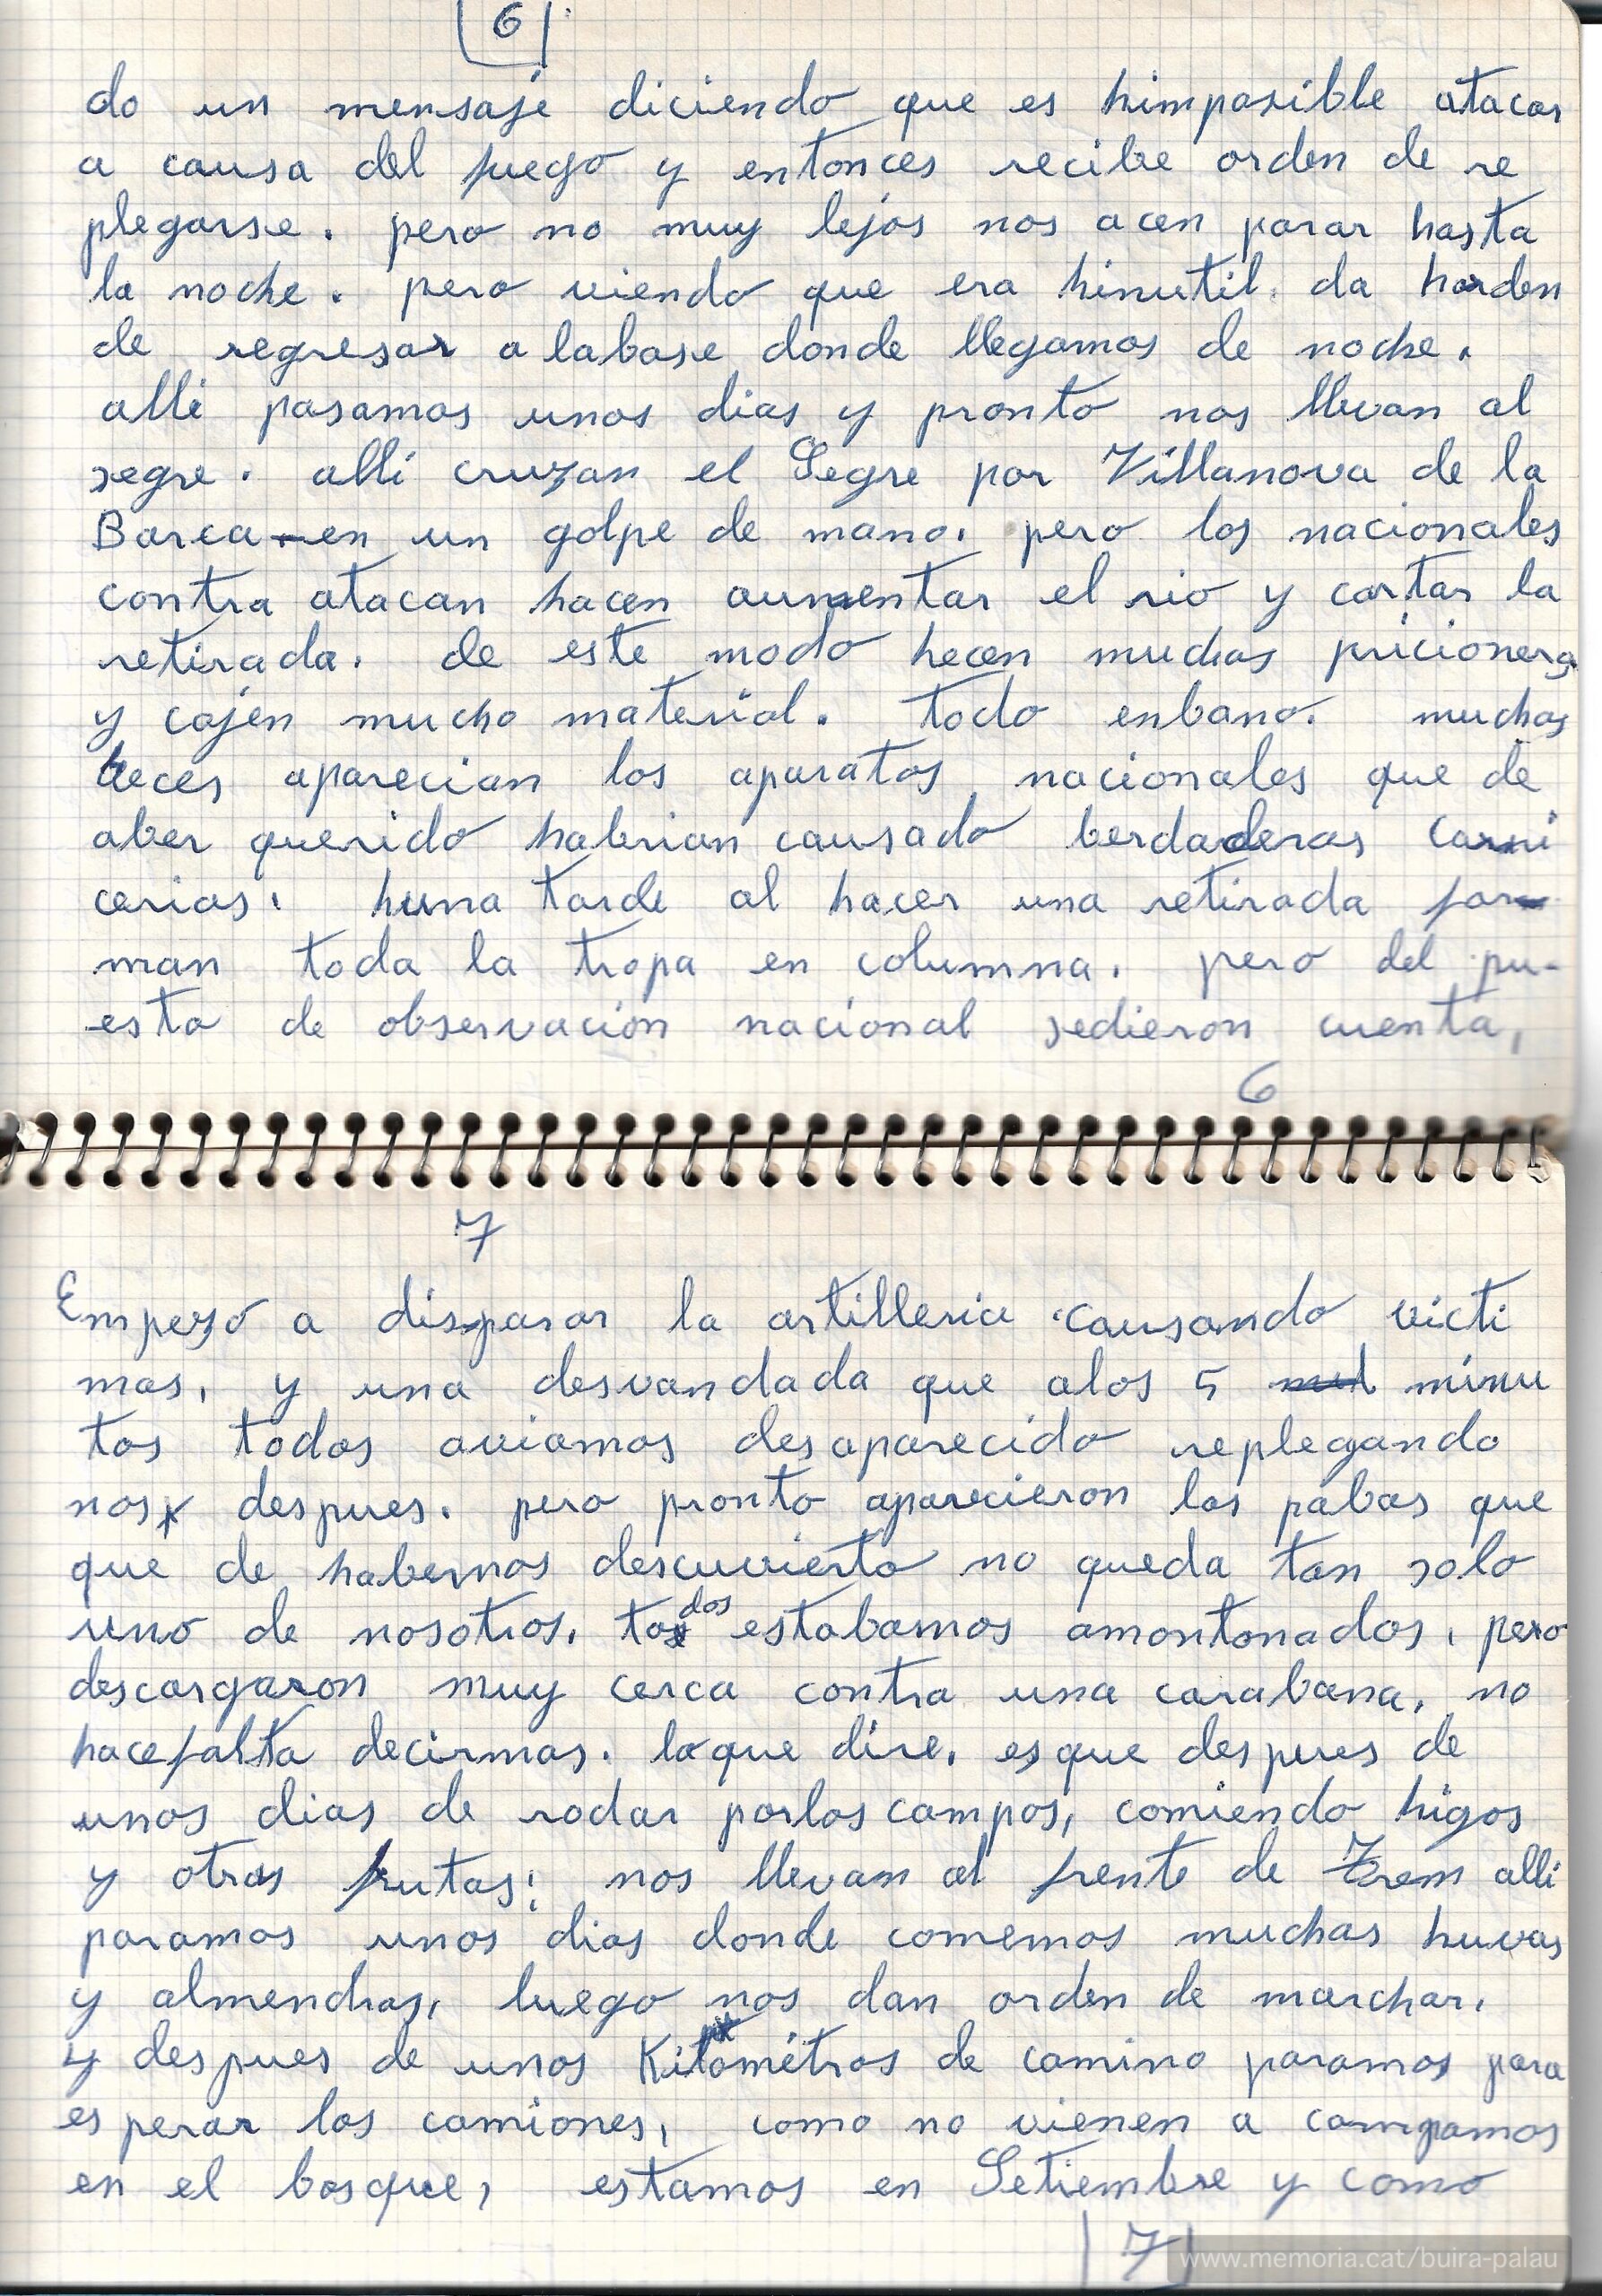 6
do un mensaje diciendo que es himposible atacar
a causa del fuego y entonces recibe orden de re
plegarse. pero no muy lejos nos acen parar hasta
la noche. pero viendo que era hinutil. da horden
de regresar a labase donde llegamos de noche.
alli pasamos unos dias y pronto nos llevan al
segre. alli cruzan el Segre por Villanova de la
Barca-en un golpe de mano. pero los nacionales
contra atacan hacen aumentar el rio y cortar la
retirada. de este modo hecen muchos pricioneros
y cojen mucho material. todo enbano. muchas
beces aparecian los aparatos nacionales que de
aber querido habrian causado berdaderas carni
cerias. huna tarde al hacer una retirada for
man toda la tropa en columna. pero del pu-
esto de observación nacional sedieron cuenta,
6
7
Empezó a disparar la artilleria causando victi
mas, y una desvandada que alos 5 minu
tos todos aviamos desaparecido replegando
nos despues. pero pronto aparecieron las pabas que
que de habernos descuvierto no queda tan solo
uno de nosotros. todos estabamos amontonados, pero
descargaron muy cerca contra una carabana, no
hacefalta decirmas. loque dire, esque despues de
unos dias de rodar porlos campos, comiendo higos
y otras frutas; nos llevan al frente de Trem alli
paramos unos dias donde comemos muchas huvas
y almendras, luego nos dan orden de marchar.
y despues de unos Kilométros de camino paramos para
esperar los camiones, como no vienen a campamos
en el bosque, estamos en Setiembre y como
7
www.memoria.cat/buira-palau